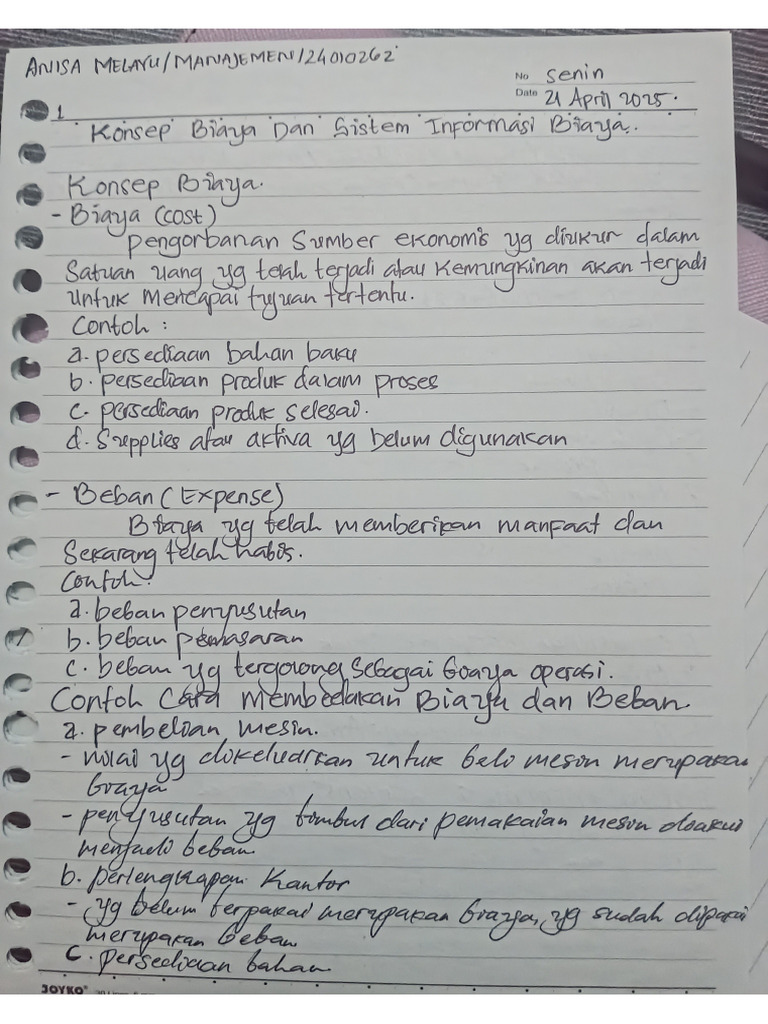 ANISA MELAYU/MANAJEMEN/24010262
No Senin
Date 21 April 2025.
1
Konsep Biaya Dan Sistem Informasi Biaya.
Konsep Biaya.
- Biaya (cost)
pengorbanan Sumber ekonomis yg diukur dalam
Satuan uang yg telah terjadi atau Kemungkinan akan terjadi
untuk Mencapai tujuan tertentu.
Contoh :
a. persediaan bahan baku
b. persediaan produk dalam proses
c. persediaan produk selesai.
d. Supplies atau aktiva yg belum digunakan
- Beban (Expense)
Biaya yg telah memberikan manfaat dan
Sekarang telah habis.
Contoh:
a. beban penyusutan
b. beban pemasaran
c. beban yg tergolong sebagai biaya operasi.
Contoh Cara Membedakan Biaya dan Beban
a. pembelian mesin.
- nilai yg dikeluarkan untuk beli mesin merupakan
biaya
- penyusutan yg timbul dari pemakaian mesin diakui
menjadi beban
b. perlengkapan Kantor
- yg belum terpakai merupakan biaya, yg sudah dipakai
merupakan beban
c. persediaan bahan
JOYKO